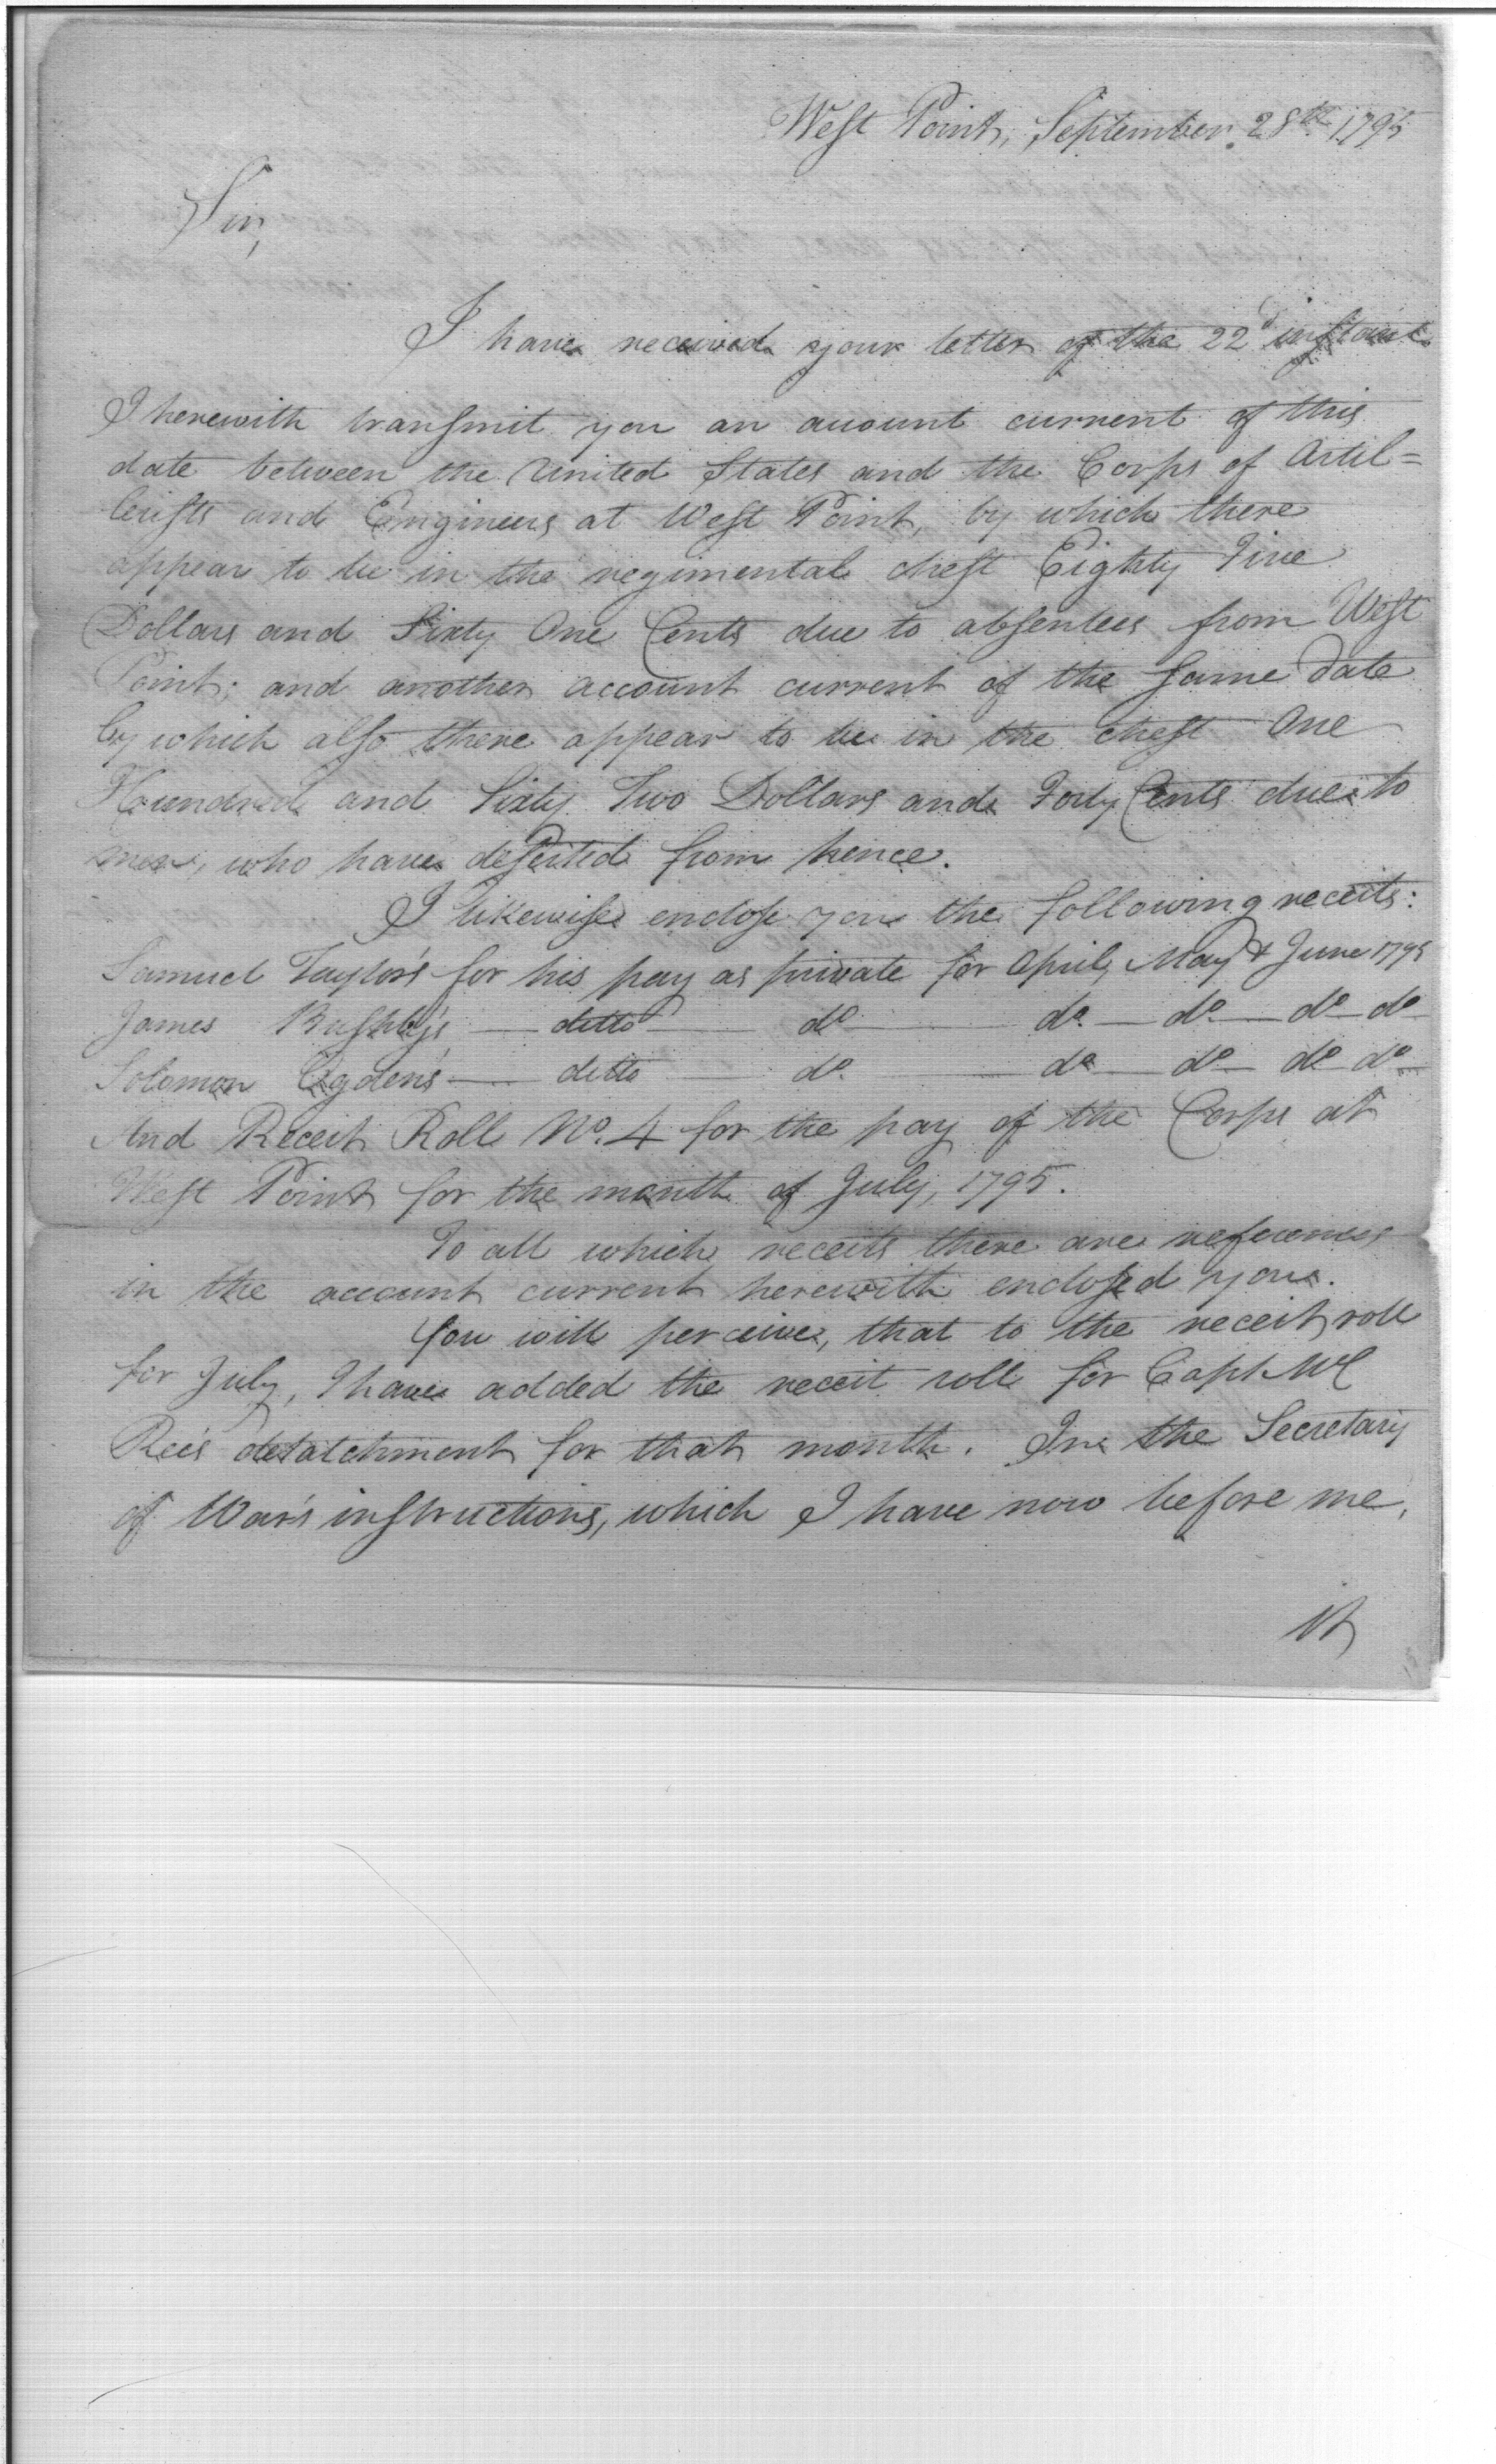 West Point, September. 28th. 1795
Sir,
I have received your letter of the 22d instant.
I herewith transmit you an account current of this
date between the United States and the Corps of Artil=
lerists and Engineers at West Point, by which there
appear to be in the regimental chest Eighty Five
Dollars and Sixty One Cents due to absentees from West
Point; and another account current of the same date
by which also there appear to be in the chest One
Hundred and Sixty Two Dollars and Forty Cents due to
men, who have deserted from hence.
I likewise enclose you the following receits:
Samuel Taylor's for his pay as private for April, May & June 1795
James Bushby's — ditto — do. — do. — do — do — do
Solomon Ogden's — ditto — do. — do — do — do do —
And Receit Roll No. 4 for the pay of the Corps at
West Point for the month of July, 1795.
To all which receits there are references
in the account current herewith enclosed you.
You will perceive, that to the receit roll
for July, I have added the receit roll for Capt. Mc
Ree's detatchment for that month. In the Secretary
of War's instructions, which I have now before me,
it